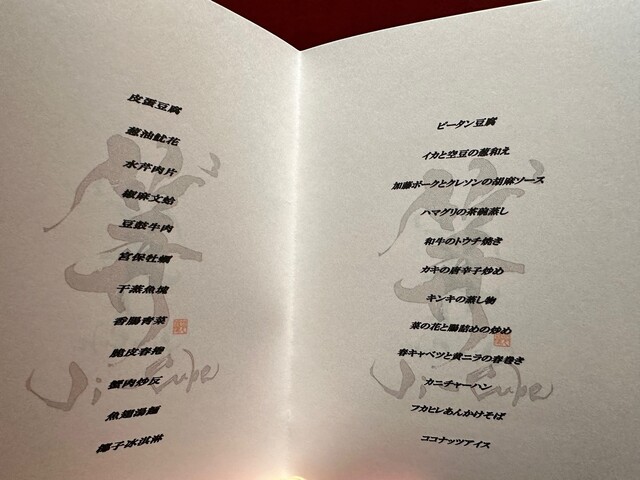 皮蛋豆腐
葱油魷花
水芹肉片
椒麻文蛤
豆豉牛肉
宮保牡蠣
干蒸魚燒
香腸青菜
脆皮春捲
蟹肉炒反
魚翅湯麺
椰子冰淇淋
ピータン豆腐
イカと空豆の葱和え
加藤ポークとクレソンの胡麻ソース
ハマグリの茶碗蒸し
和牛のトウチ焼き
カキの唐辛子炒め
キンキの蒸し物
菜の花と腸詰めの炒め
春キャベツと黄ニラの春巻き
カニチャーハン
フカヒレあんかけそば
ココナッツアイス